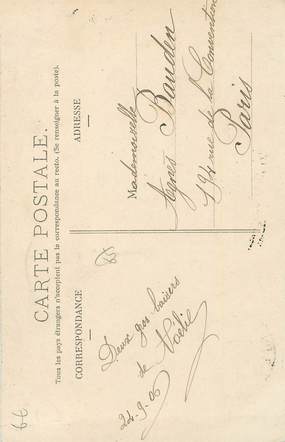 CARTE POSTALE.
Tous les pays étrangers n'acceptent pas la correspondance au recto. (Se renseigner à la poste).
CORRESPONDANCE
ADRESSE
Deux gros baisers
de Noélie
24-9-06
Mademoiselle
Agnès Bauden
rue de la Convention
Paris
66